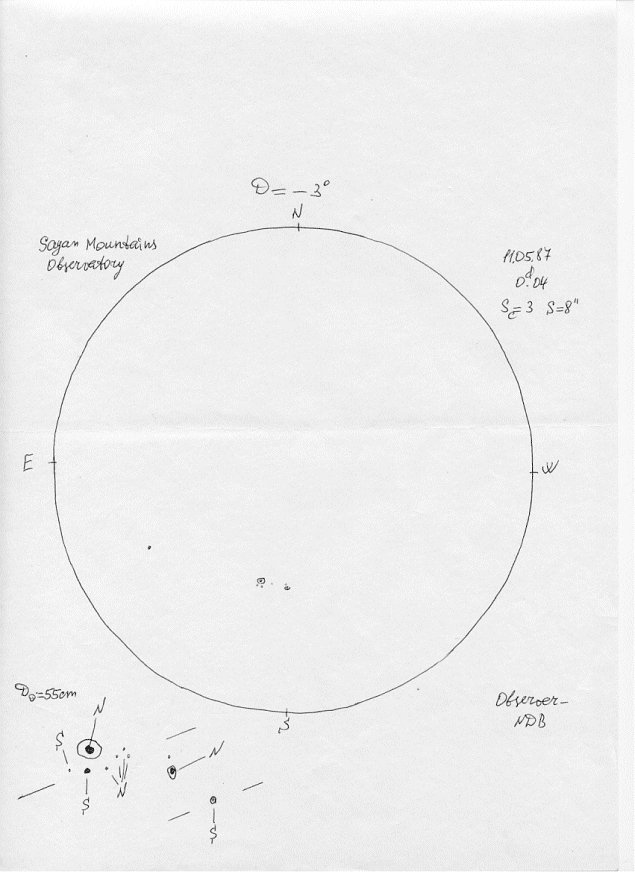 D = – 3°
N
Sayan Mountains
Observatory
11.05.87
0ᵈ.04
S꜀=3 S=8"
E
W
S
D⊙=55cm
Observer –
NDB
N
S
N
S
N
S